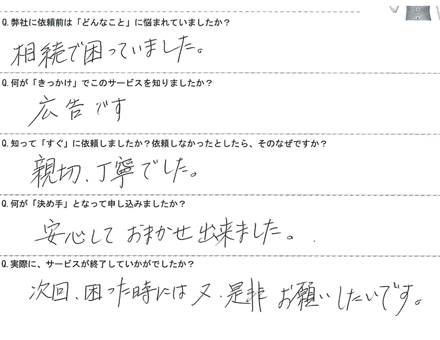 Q.弊社に依頼前は「どんなこと」に悩まれていましたか？
相続で困っていました。
Q.何が「きっかけ」でこのサービスを知りましたか？
広告です
Q.知って「すぐ」に依頼しましたか？依頼しなかったとしたら、そのなぜですか？
親切、丁寧でした。
Q.何が「決め手」となって申し込みましたか？
安心して おまかせ出来ました。
Q.実際に、サービスが終了していかがでしたか？
次回、困った時には又、是非 お願いしたいです。